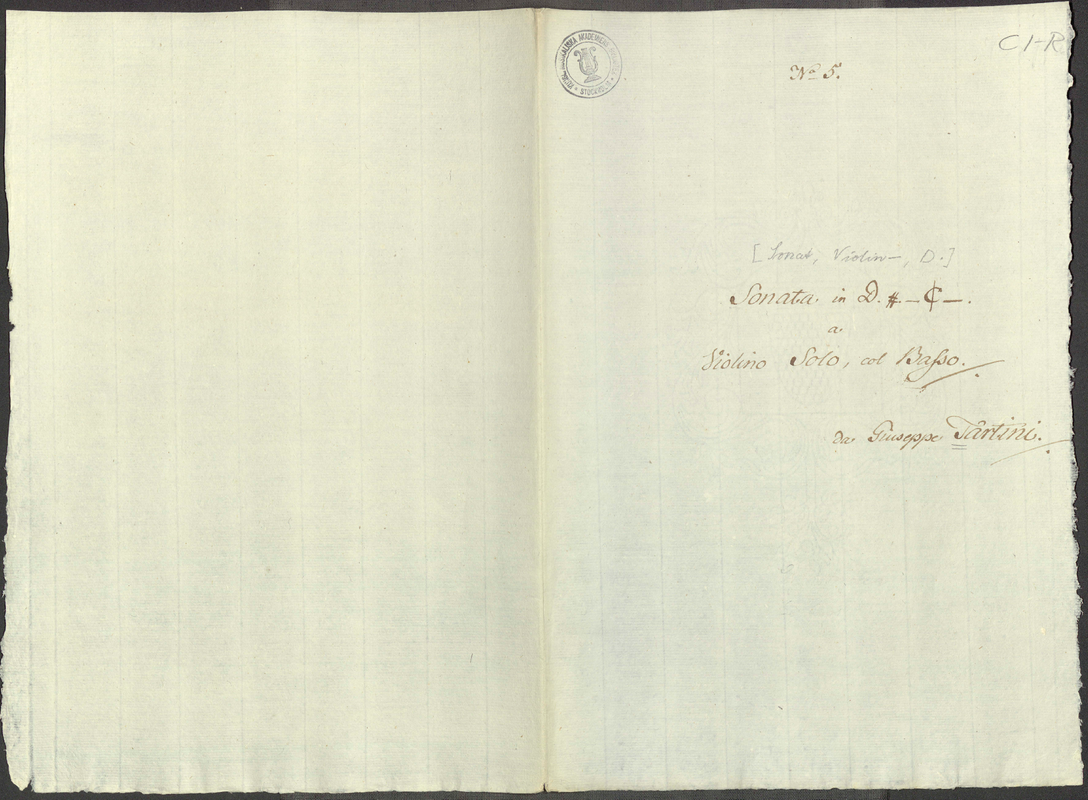 C1-R
No 5.
[Sonat, Violin-, D.]
Sonata in D. #. – ₵ –.
a
Violino Solo, col Baſso.
da Giuseppe Tartini.
AKADEMIENS
STOCKHOLM